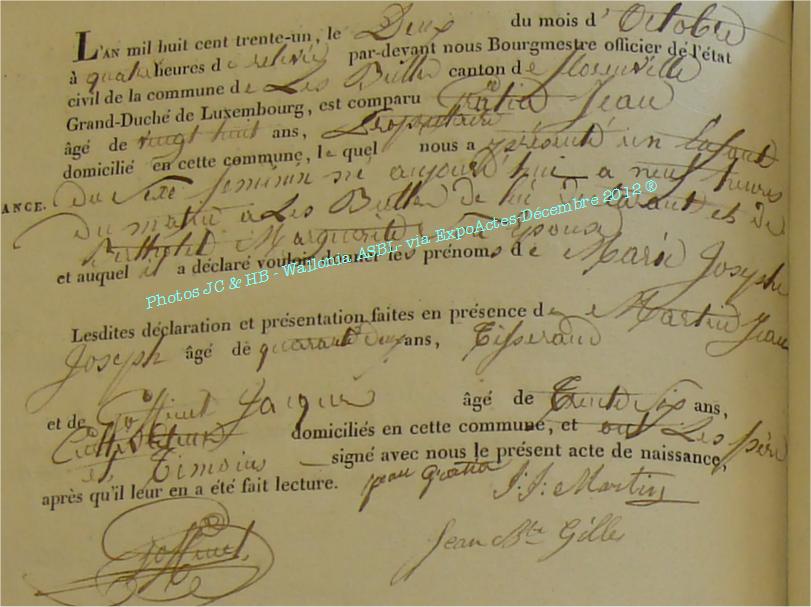 L'AN mil huit cent trente-un, le Deux du mois d'Octobre
à quatre heures de relevée par-devant nous Bourgmestre officier de l'état
civil de la commune de Les Bulles canton de florenville
Grand-Duché de Luxembourg, est comparu Jean
âgé de vingt huit ans, Propriétaire
domicilié en cette commune, lequel nous a présenté un Enfant
ANCE. du Sexe feminin né aujourd'hui a neuf heures
du matin a Les Bulles de lui déclarant et de
Marguerite Sa Epouse
et auquel il a déclaré vouloir donner les prénoms de Marie Joseph
Photos JC & HB - Wallonia ASBL- via ExpoActes-Décembre 2012 ®
Lesdites déclaration et présentation faites en présence de Martin Jean
Joseph âgé de quarante deux ans, Tisserand
et de Goffinet Jacques âgé de Trente Six ans,
Cultivateur domiciliés en cette commune, et ont Les père
et Temoins signé avec nous le présent acte de naissance,
après qu'il leur en a été fait lecture. jean J: J: Martin
Goffinet Jean Bte Gilles